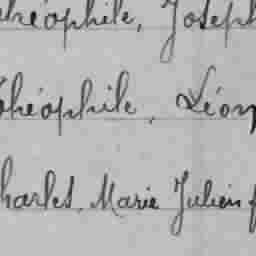 théophile, Joseph
théophile, Léon
harles, Marie Julien